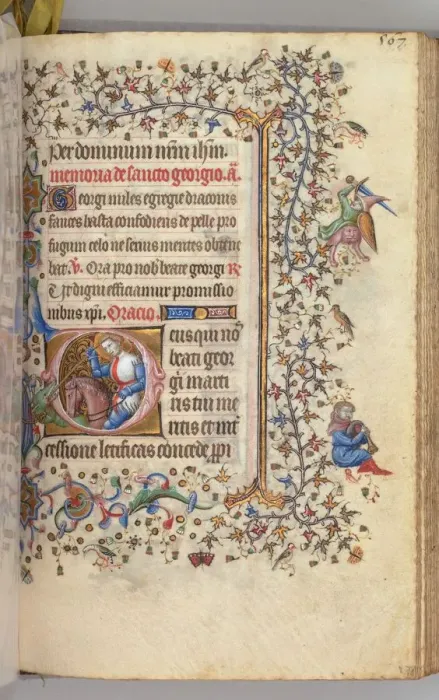 307
Per dominum nr̄m ih̄m.
memoria de sancto georgio. ā.
Georgi miles egregie draconis
fauces hasta confodiens de pelle pro
fugum celo ne senus mentes obtine
bat. V. Ora pro nob̄ beate georgi R
Ut digni efficiamur promissio
nibus xp̄i. Oracio.
Deus qui nos
beati geor
gij marti
ris tui me
ritis et int̄
cessione letificas concede p̄pi